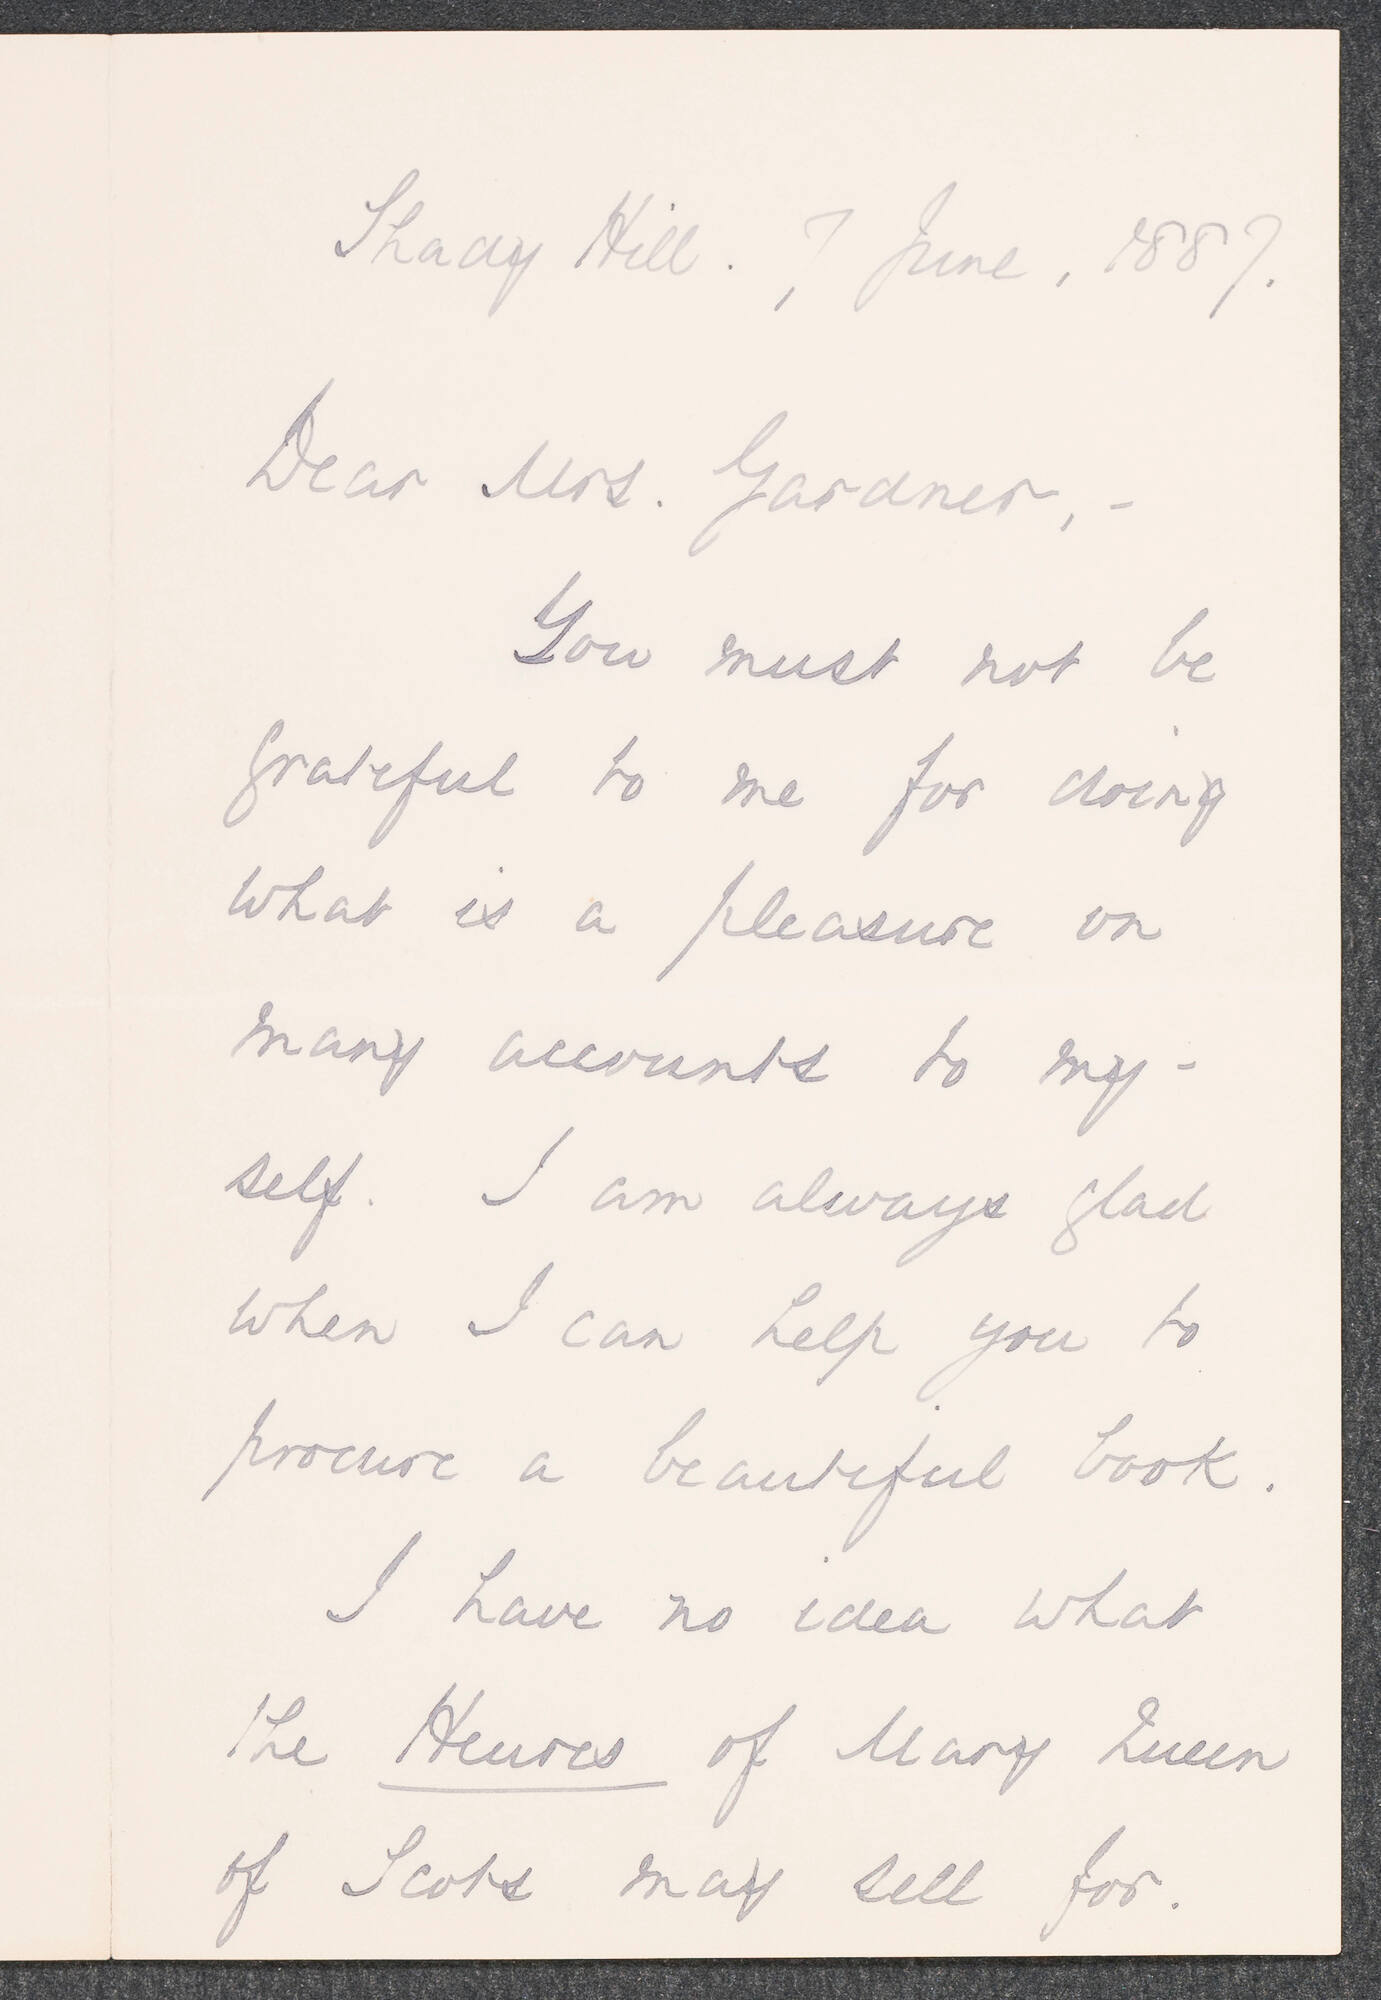 Shady Hill. 7 June, 1887.
Dear Mrs. Gardner, -
You must not be
grateful to me for doing
what is a pleasure on
many accounts to my-
self. I am always glad
when I can help you to
procure a beautiful book.
I have no idea what
the Heures of Mary Queen
of Scots may sell for.